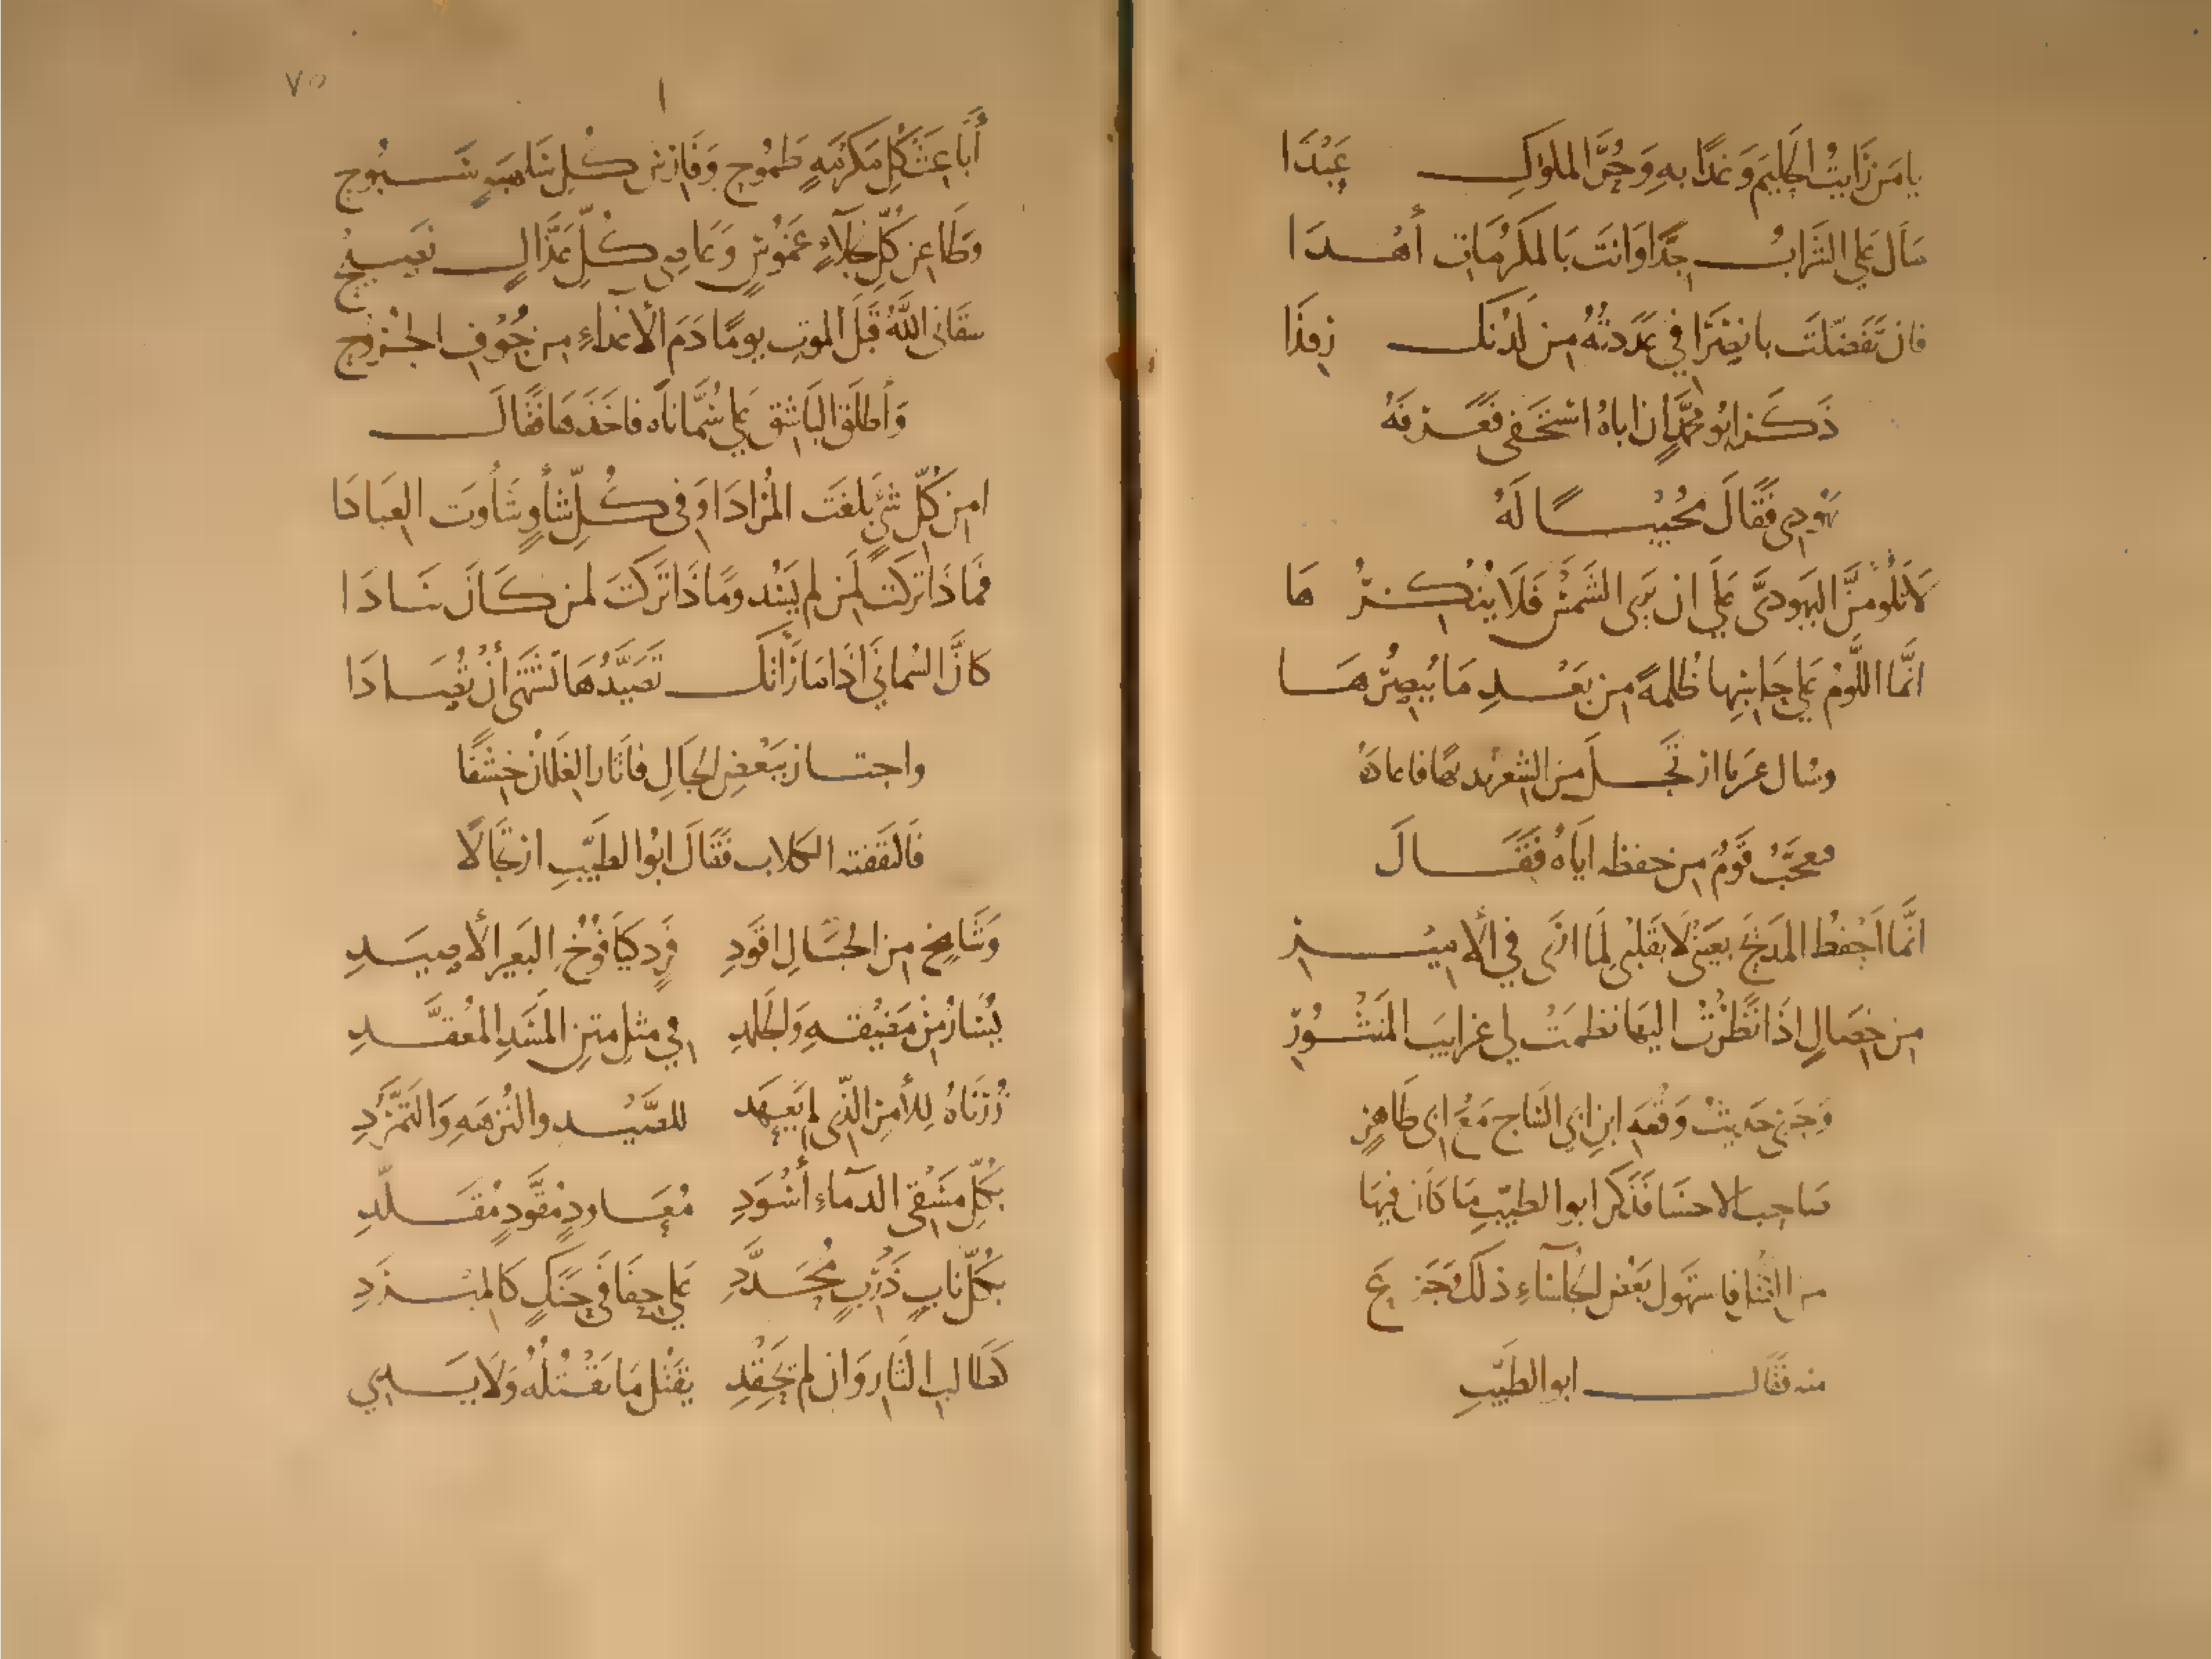 يا مَن رَاَيتُ الحَليمَ وَغدًا به وَحُرَّ الملوكِ عَبْدَا
مَالَ عَلي الشَرَابُ جِدًّا وَانتَ بالمَكرُمَاتِ أهْدَا
فان تَفَضّلتَ بانصِرَافي عَدَدتُه مِن لَدُنكَ رِفدَا
ذَكَرَ ابُو مُحمَّدٍ ان اباهُ اسْتَخفى فعَرفَهُ
يَهُودِى فَقَالَ مُجيْبًا لَهُ
لَا تَلُومَنَّ اليَهودىَّ عَلَى ان يَرى الشَمسَ فَلَا يُنْكِرُ هَا
انَّما اللَّومُ عَلى حَاسِبها ظُلمةً مِن بَعْدِ مَا يُبصِرُهَا
وسُال عَمَّا ارتَجَلَ مِن الشعر بديهًا فاعادَهُ
فعَجِبَ قَومٌ مِن حفظه ايَاهُ فَقَالَ
انَّما اَحْفظُ المَدِيْحَ بعَيْنى لَا بقَلبى لِمَا ارَى في الأميْرِ
مِن خِصَالٍ اِذَا نَظَرْتُ اليهَا نظمَتْ لي غرايبَ المَنْثُورِ
وَجَرى حَديثُ وَقْعَةِ ابنِ ابي السَاج مَعَ ابى طَاهِرٍ
صَاحِب الاحسَا فَذَكَر ابو الطيّبِ مَا كَانَ فيهَا
من القتل فاستهَول بَعْض الجُلسَاءِ ذلكَ وَجَزعَ
منه فقَالَ ابو الطَيّبِ
٧٥
أبَاعِثَ كُلِّ مَكرُمَةٍ طَمُوح وَفَارِسَ كُلِ سَلهَبَةٍ سَبُوحِ
وَطَاعِنَ كُلِّ نَجلاءٍ غَمُوسٍ وَعَاصِي كُلِّ عَذَّالٍ نَصِيحِ
سقَانى اللهُ قَبْلَ الموتِ يومًا دَمَ الأعْدَاءِ مِن جُوْفِ الجُرُوحِ
وَأطلَق البَاشِق عَلى سُمَّانَاه فاخَذهَا فَقَالَ
امِن كُلّ شئٍ بَلغتَ المُرَادَا وَفى كُلِّ شأوٍ شَأوتَ العِبَادَا
فمَاذَا تركتَ لمَن لم يَسُد ومَاذَا تَرَكْتَ لمن كَانَ سَادَا
كانَّ السُمانَى اذَا مَا رَأتكَ تَصَيَّدُهَا تَشتَهى أنْ تُصَادَا
واجتازَ ببَعْضِ الجبَالِ فاَثَارَ الغلمَانُ خِشْفًا
فالتَقفته الكِلاب فقَالَ ابُو الطَيّبِ ارتجَالًا
وَشَامِخٍ مِنَ الجبَالِ اقوَدِ فَرِدٍ كيَافُوْخِ البَعيرِ الأصيَدِ
يُسَارُ مِنْ مَضيْقهِ وَالجَلمَدِ في مثلِ متنِ المَسَدِ المُعَقَّدِ
زُرْنَاهُ لِلأَمرِ الّذى لم يُعهَدِ للصَيْدِ والنُزهَةِ وَالتَمَرُّدِ
بكلّ مَسْقى الدمَاءِ أسْوَدِ مُعَاوِدٍ مُقَوَّدٍ مُقَلَّدِ
بكُلّ نَابٍ ذَرِبٍ مُحَدَّدِ عَلى حِفَافَي حَنَكٍ كَالمِبْرَدِ
كَطَالبِ الثَارِ وَان لم يَحقِدِ يَقْتُل مَا يَقْتُلُهُ وَلَا يَدِي